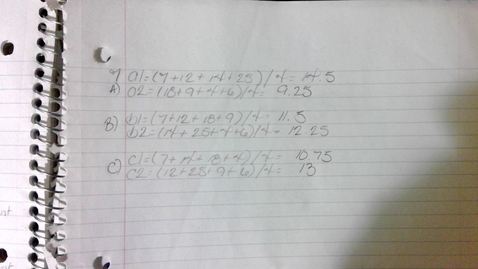 1 a1=(7+12+14+25)/4= 14.5
A) a2=(18+9+4+6)/4= 9.25
B) b1=(7+12+18+9)/4= 11.5
b2=(14+25+4+6)/4= 12.25
C) c1=(7+14+18+4)/4= 10.75
c2=(12+25+9+6)/4= 13